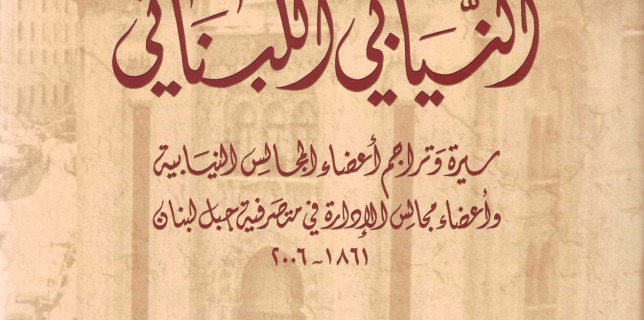 النيابي اللبناني
سيرة وتراجم أعضاء المجالس النيابية
وأعضاء مجالس الإدارة في متصرفية جبل لبنان
١٨٦١-٢٠٠٦